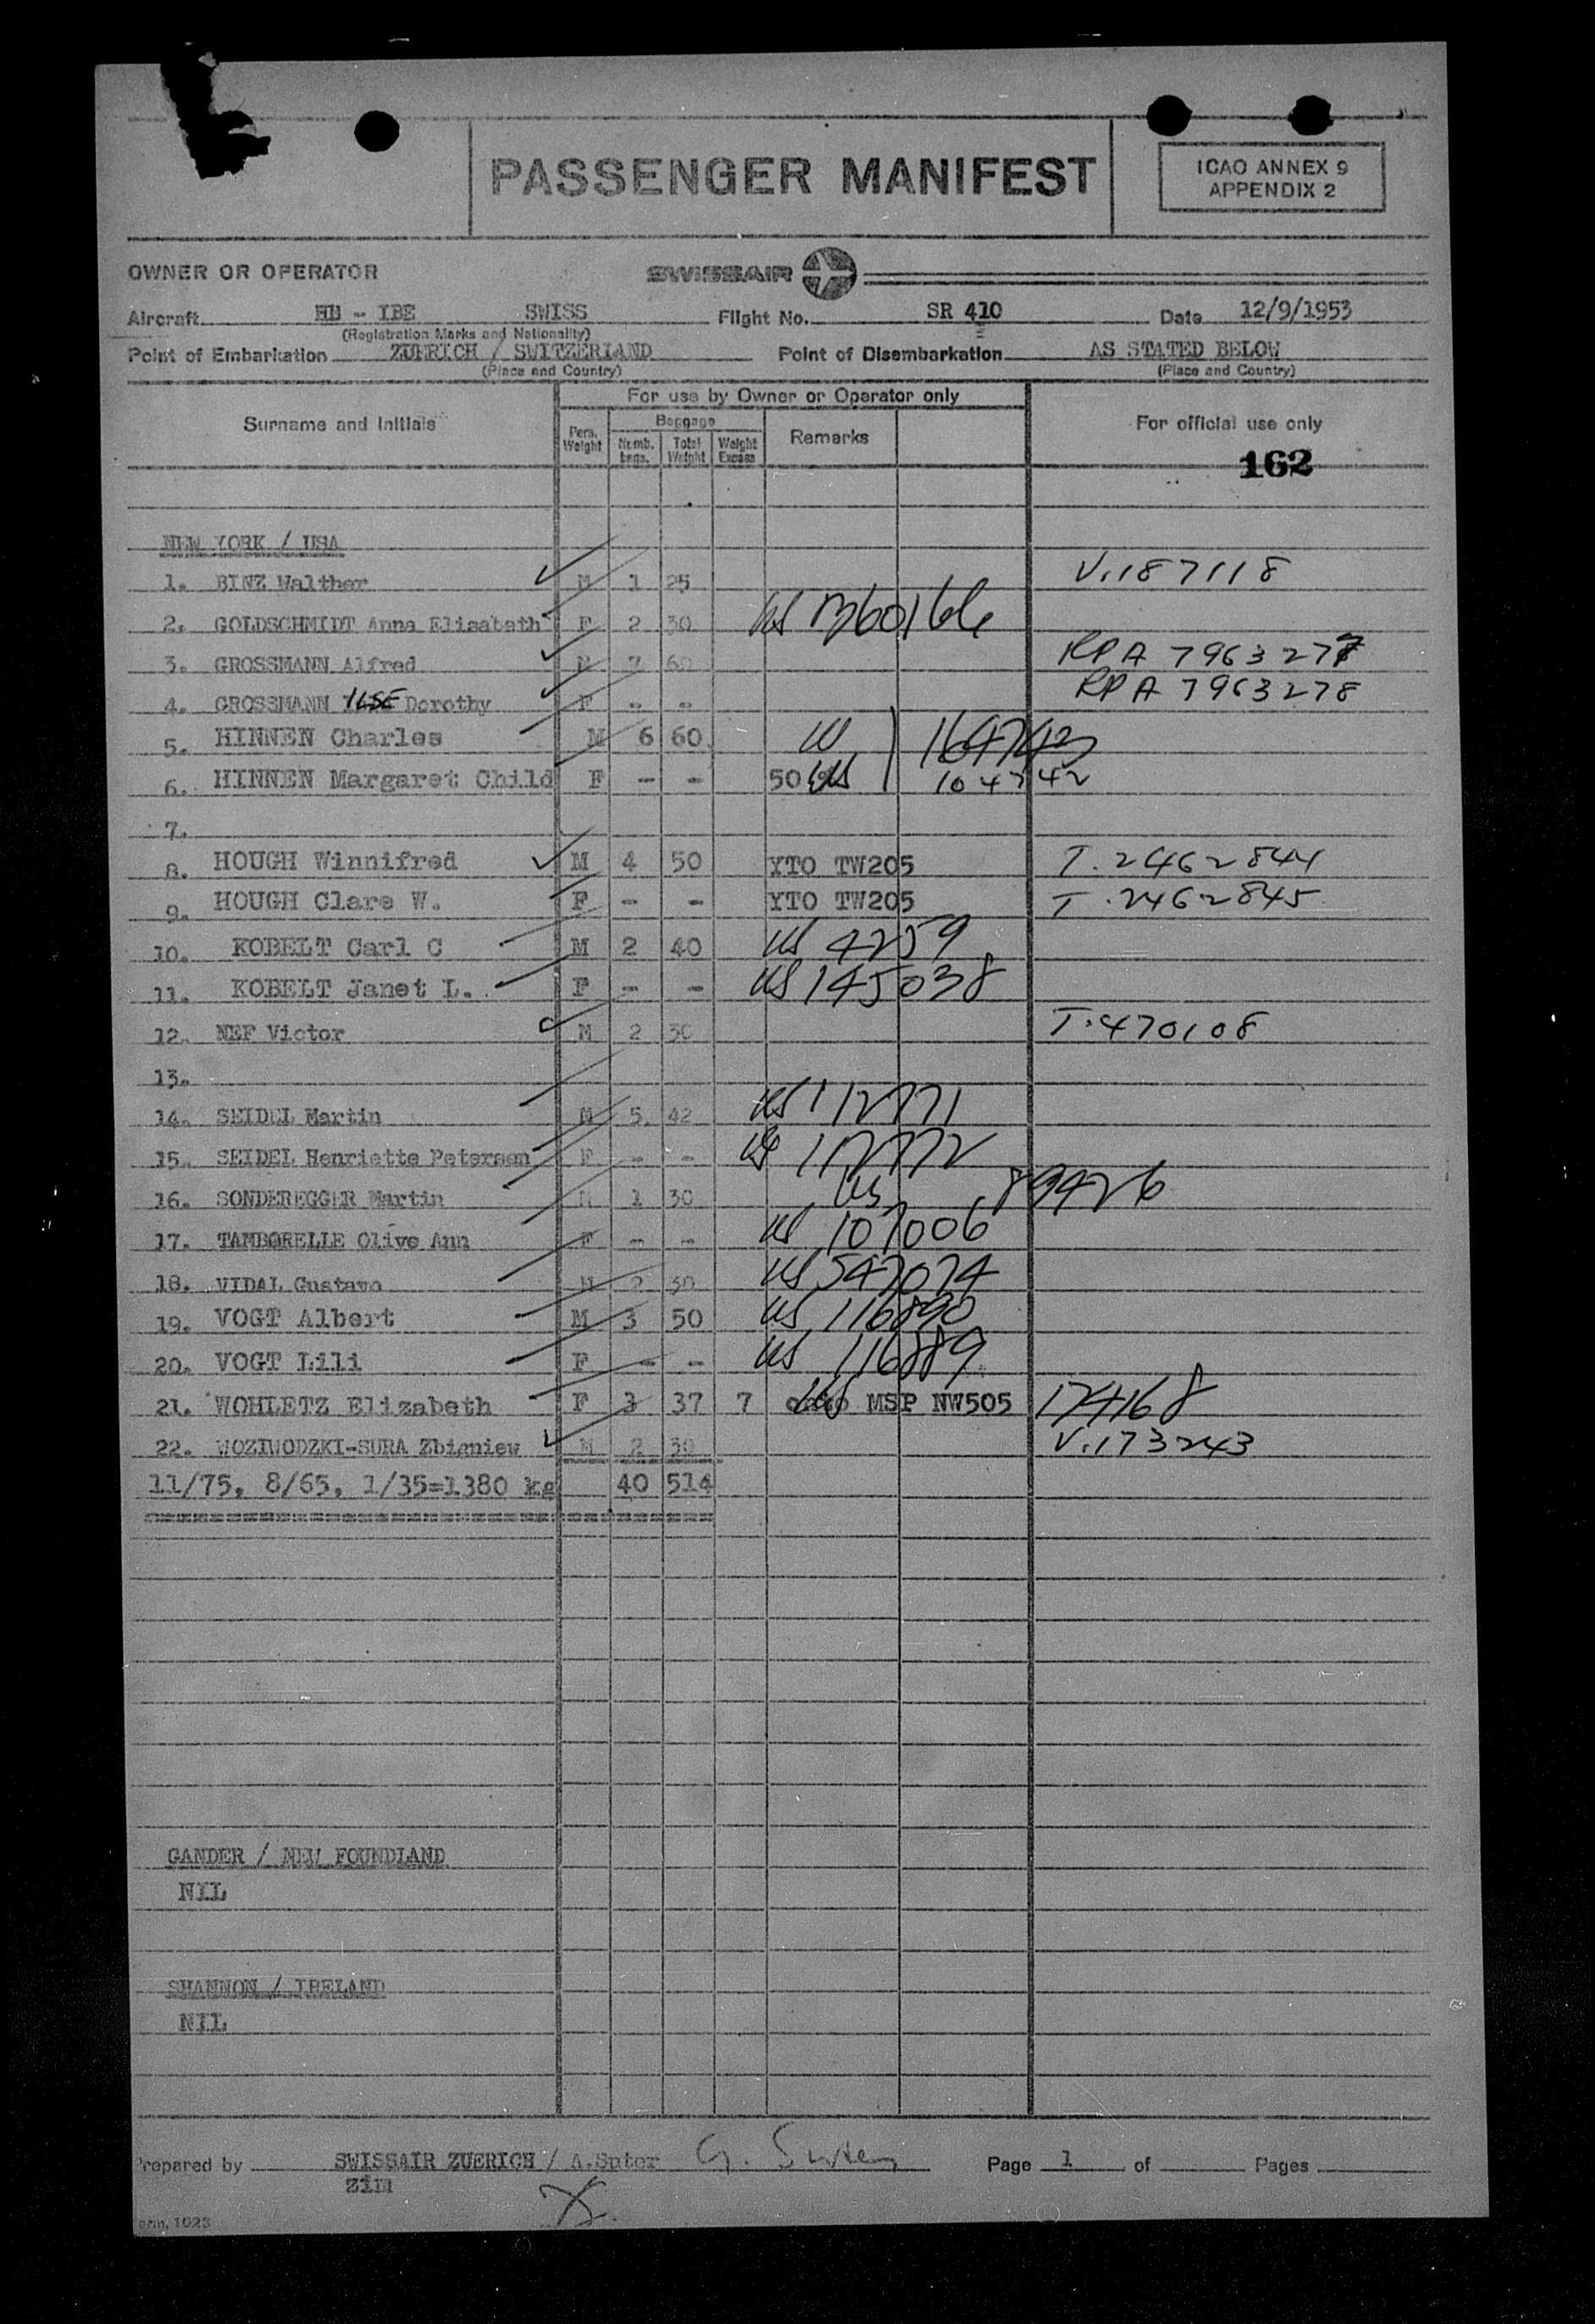 PASSENGER MANIFEST
ICAO ANNEX 9
APPENDIX 2
OWNER OR OPERATOR
SWISSAIR
Aircraft HB - IBE SWISS Flight No. SR 410 Date 12/9/1953
(Registration Marks and Nationality)
Point of Embarkation ZUERICH / SWITZERLAND Point of Disembarkation AS STATED BELOW
(Place and Country) (Place and Country)
For use by Owner or Operator only
Surname and Initials Pers. Weight Baggage Numb. bags. Total Weight Weight Excess Remarks For official use only
162
NEW YORK / USA
1. BINZ Walther M 1 25 V.187118
2. GOLDSCHMIDT Anna Elisabeth F 2 30 US 360166
3. GROSSMANN Alfred M 7 60 RPA 7963277
4. GROSSMANN ILSE Dorothy F - - RPA 7963278
5. HINNEN Charles M 6 60 164743
6. HINNEN Margaret Child F - - 50 US 104742
7.
8. HOUGH Winnifred M 4 50 YTO TW205 T.2462844
9. HOUGH Clare W. F - - YTO TW205 T.2462845
10. KOBELT Carl C M 2 40 US 4259
11. KOBELT Janet L. F - - US 145038
12. NEF Victor M 2 30 T.470108
13.
14. SEIDEL Martin M 5 42 US 112771
15. SEIDEL Henriette Petersen F - - US 112772
16. SONDEREGGER Martin M 1 30 US 89426
17. TAMBORELLE Olive Ann F - - US 107006
18. VIDAL Gustavo M 2 30 US 547074
19. VOGT Albert M 3 50 US 116890
20. VOGT Lili F - - US 116889
21. WOHLETZ Elizabeth F 3 37 7 US MSP NW505 174168
22. WOZIWODZKI-SURA Zbigniew M 2 30 V.173243
11/75, 8/65, 1/35=1380 kg 40 514
GANDER / NEW FOUNDLAND
NIL
SHANNON / IRELAND
NIL
Prepared by SWISSAIR ZUERICH / A.Suter G. Suter Page 1 of Pages
ZiM
orm, 1023